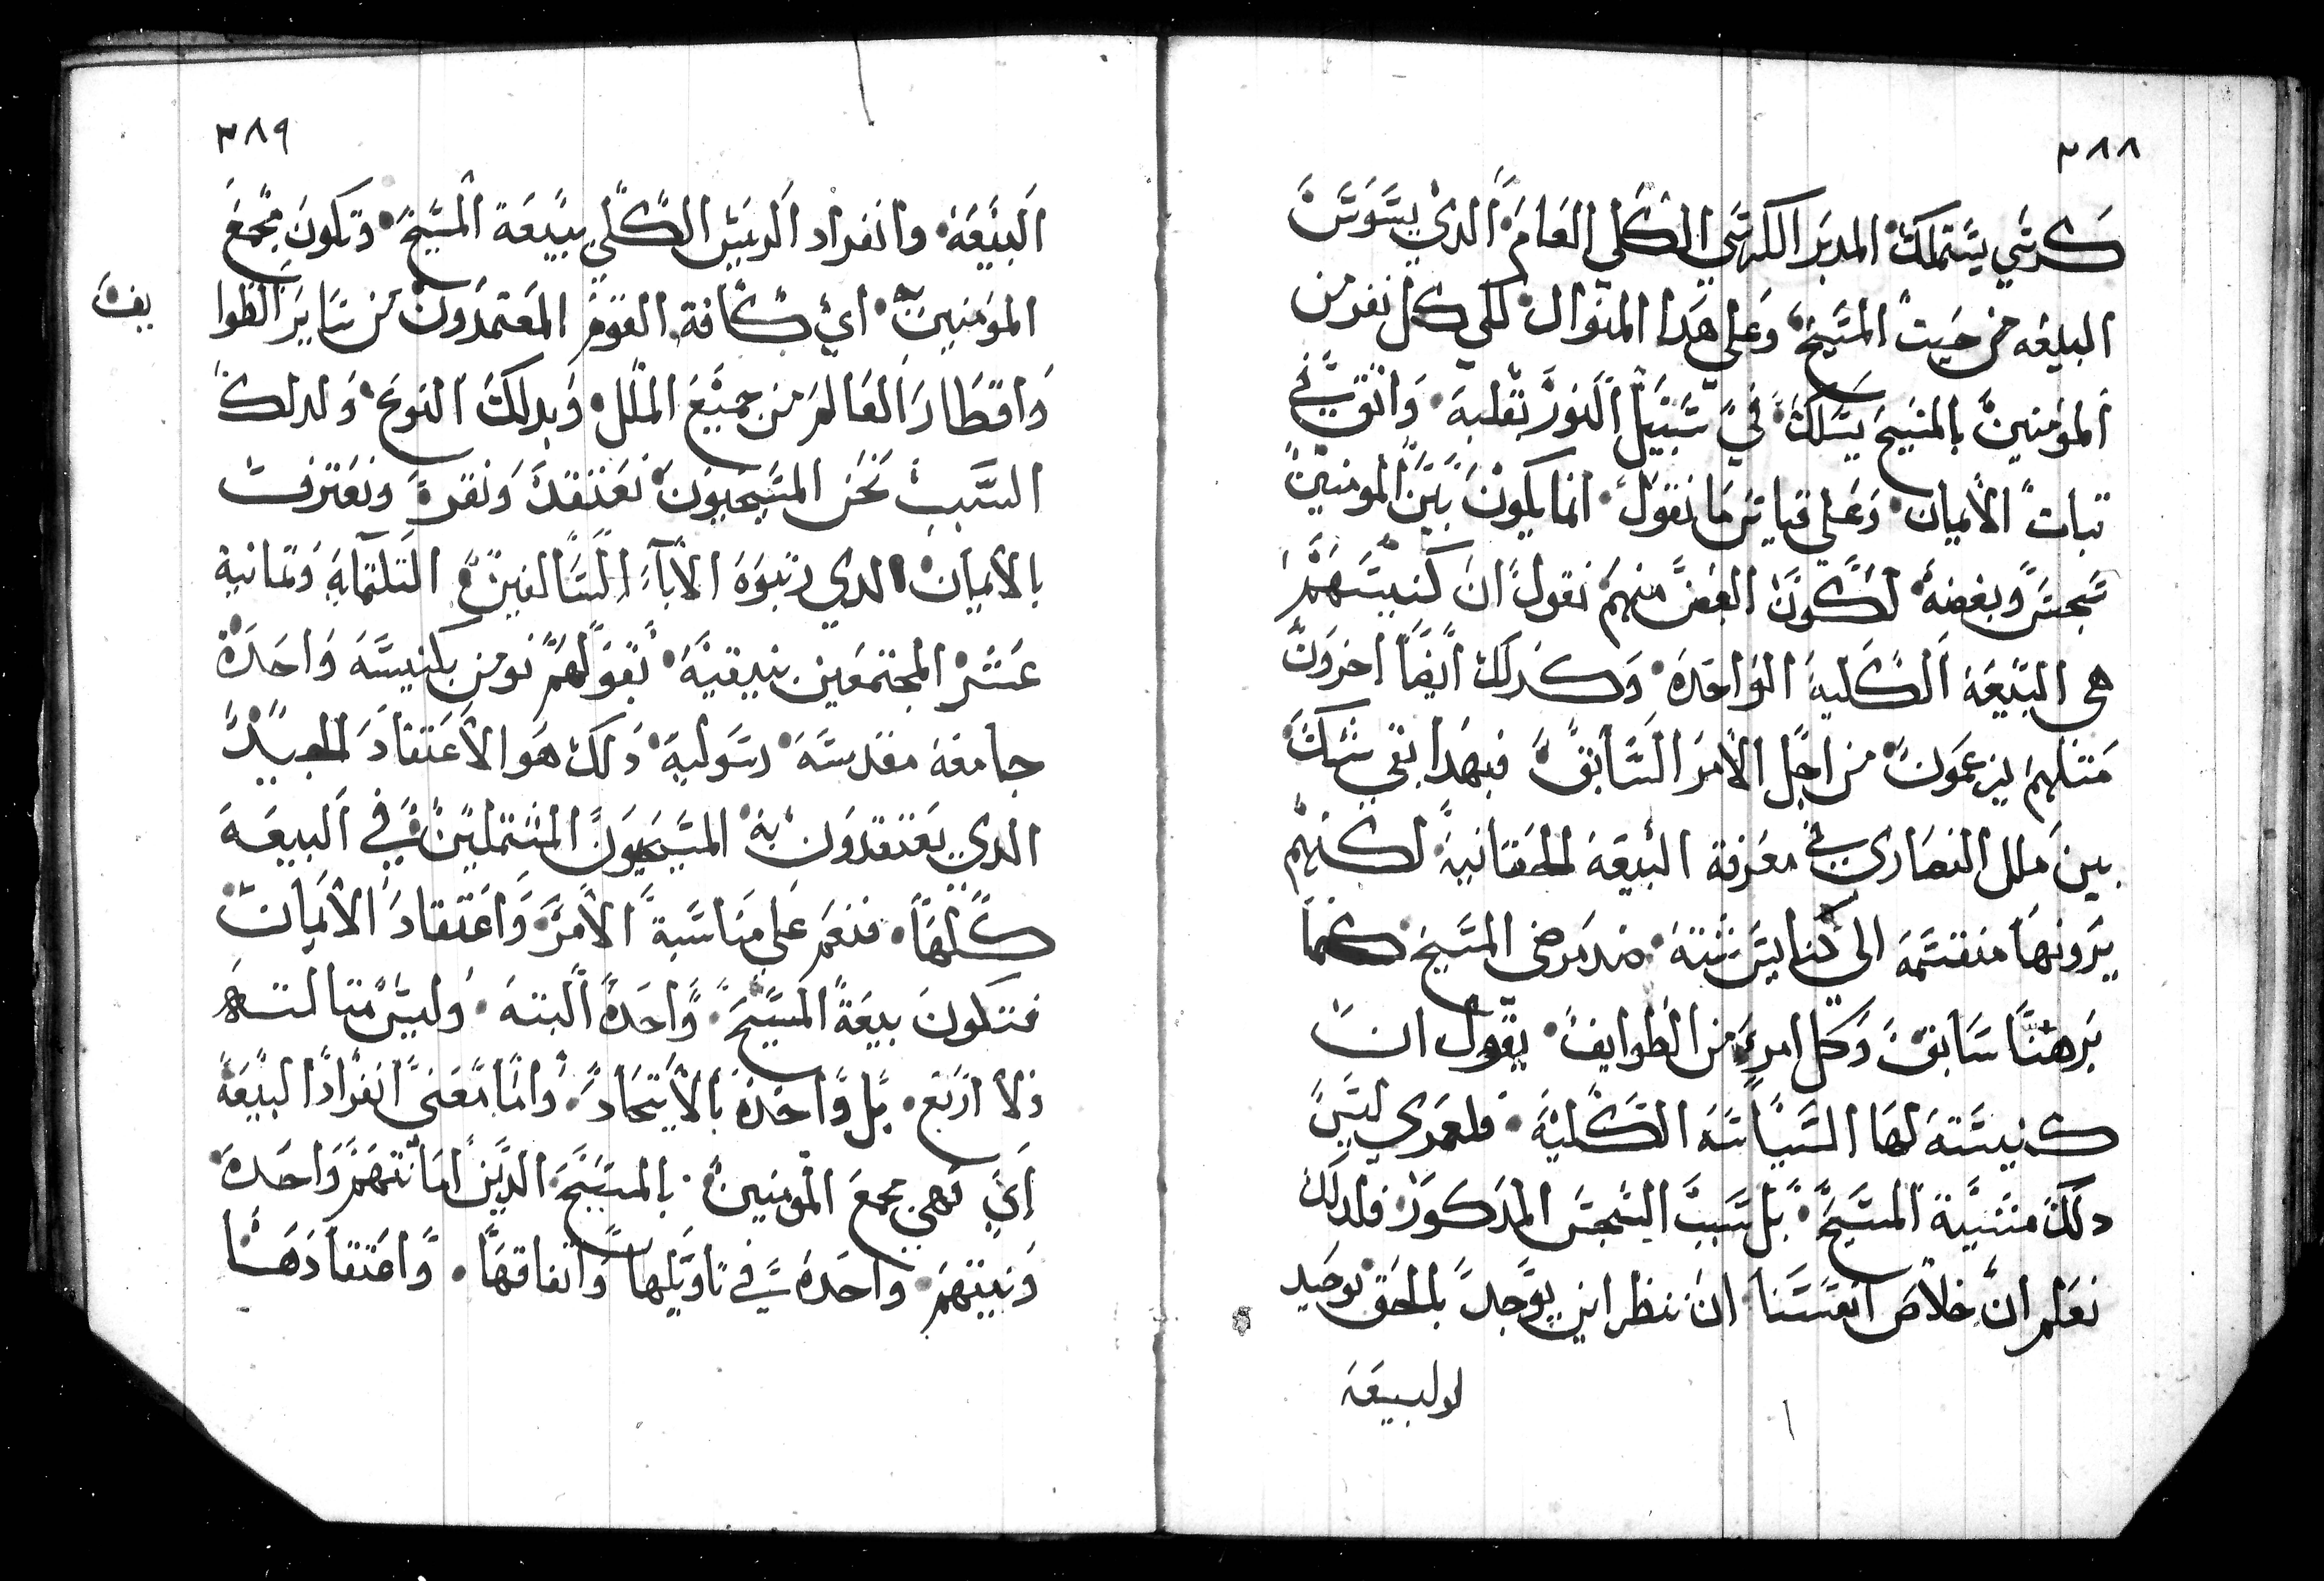 ٣٨٨
كرسي يستملك المدبر الكرسي الكلي العام الدي يسوس
البيعه من حيت المسيح وعلي هدا المنوال لكي كل نفر من
المومنين بالمسيح يسلك في سبيل النور بقلبه واتق في
تبات الايمان وعلي قياس ما نقول انما يكون بين المومنين
سجس وبغضه لكون البعض منهم نقول ان كنيستهم
هي البيعة الكلية الواحدة وكدلك ايضا اخرون
متلهم يزعمون من اجل الامر السابق فبهدا بقي شك
بين ملل النصاري في معرفة البيعة الحقانية لكنهم
يرونها منقسمه الي كنايس شته ضد مرضي المسيح كما
برهنا سابق وكل امرء من الطوايف يقول ان
كنيسته لها السياسه الكلية فلعمري ليس
دلك مشية المسيح بل سبب السجس المدكور فلدلك
نعلم ان خلاص انفسنا ان ننظر اين يوجد بالحق توحيد
لولبيعه
٣٨٩
البيعه وانفراد الريس الكلي ببيعة المسيح وتكون مجمع
المومنين اي كافة القوم المعتمدون من ساير الطوا
يف
واقطار العالم من جميع الملل وبدلك النوع ولدلك
السبب نحن المسيحيون نعتقد ونقر ونعترف
بالايمان الدي رتبوه الاباء السالفين التلتماية وتمانية
عشر المجتمعين بنيقية بقولهم نومن بكنيسه واحدة
جامعة مقدسه رسولية دلك هو الاعتقاد الجيد
الدي يعتقدون به المسيحيون المشتملين في البيعه
كلها فنعم علي مناسبة الامر واعتقاد الايمان
فتكون بيعة المسيح واحدة البته وليس متالته
ولا اربع بل واحدة بالاتحاد واما معني انفراد البيعة
اي فهي مجمع المومنين بالمسيح الدين امانتهم واحدة
ونيتهم واحدة في تاويلها واتفاقها واعتقادها